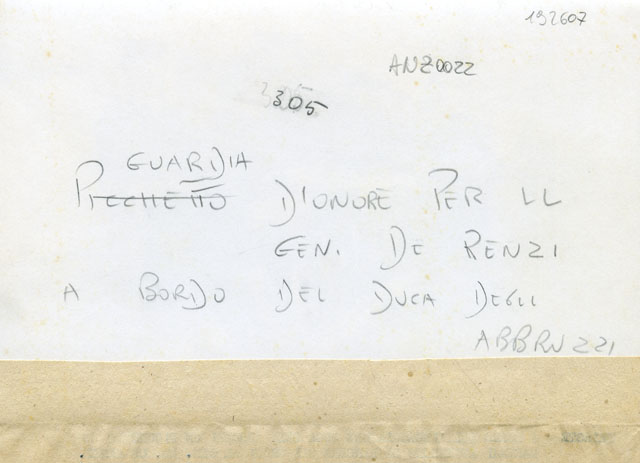 192607
ANZ0022
305
GUARDIA
PICCHETTO D'ONORE PER IL
GEN. DE RENZI
A BORDO DEL DUCA DEGLI
ABBRUZZI